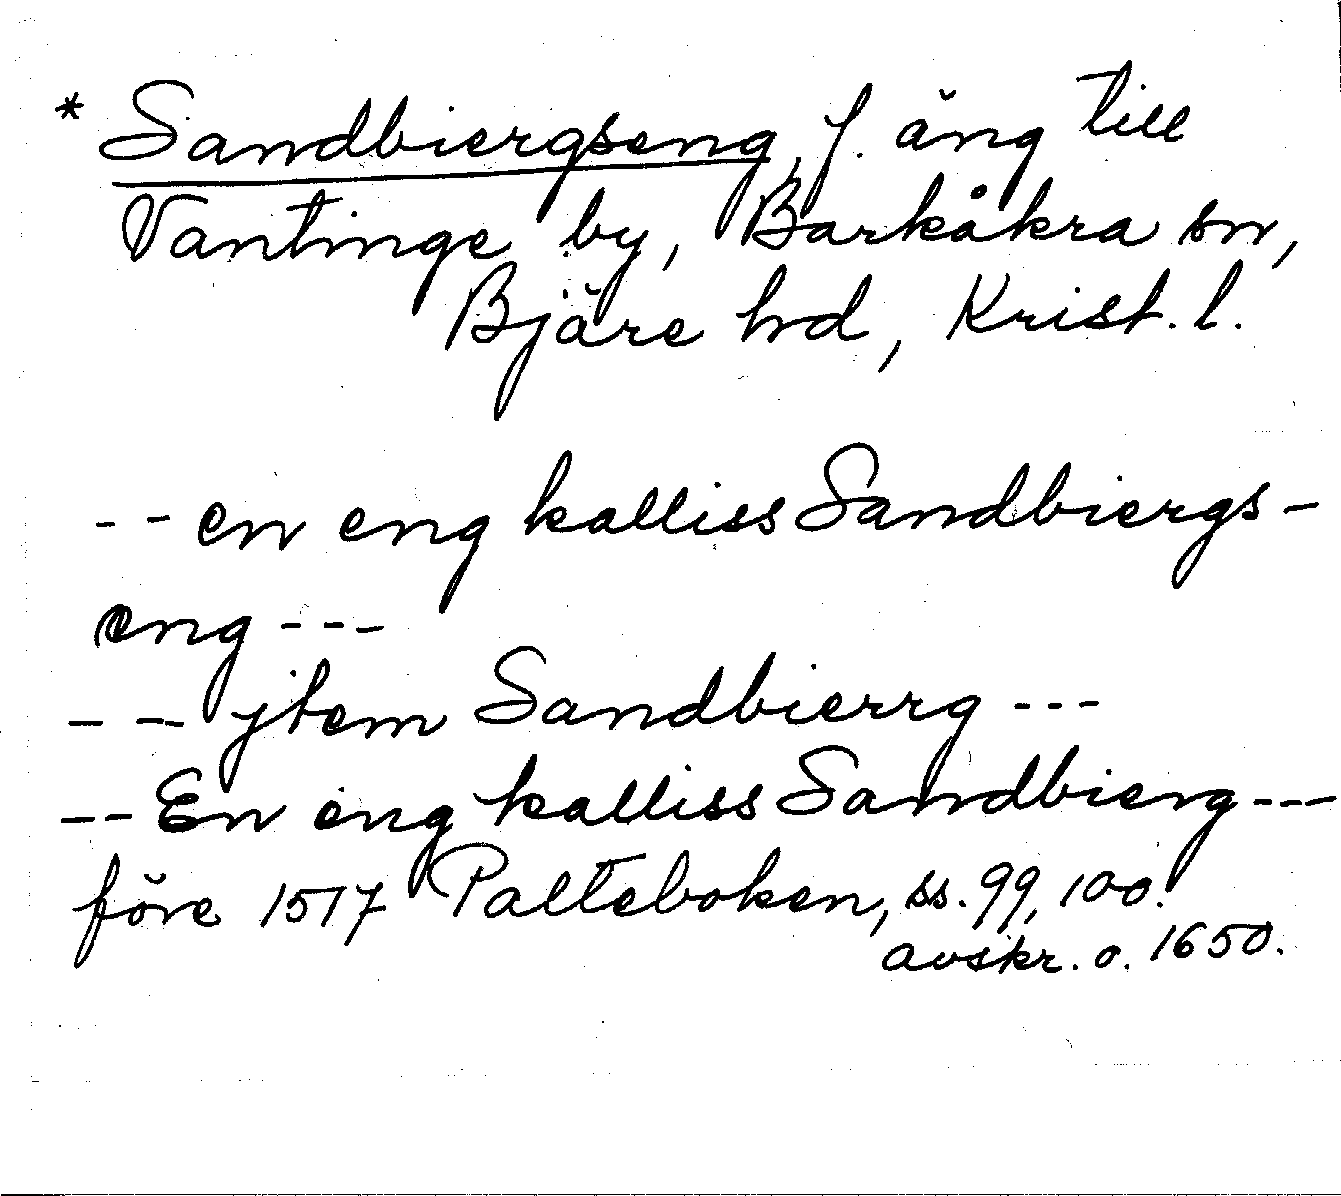 * Sandbiergseng, f. äng till
Vantinge by, Barkåkra sn,
Bjäre hd, Krist. l.
-- en eng kalliss Sandbiergs-
eng ---
-- jtem Sandbierrg ---
-- En eng kalliss Sandbierg ---
före 1517 Palteboken, ss. 99, 100.
avskr. o. 1650.